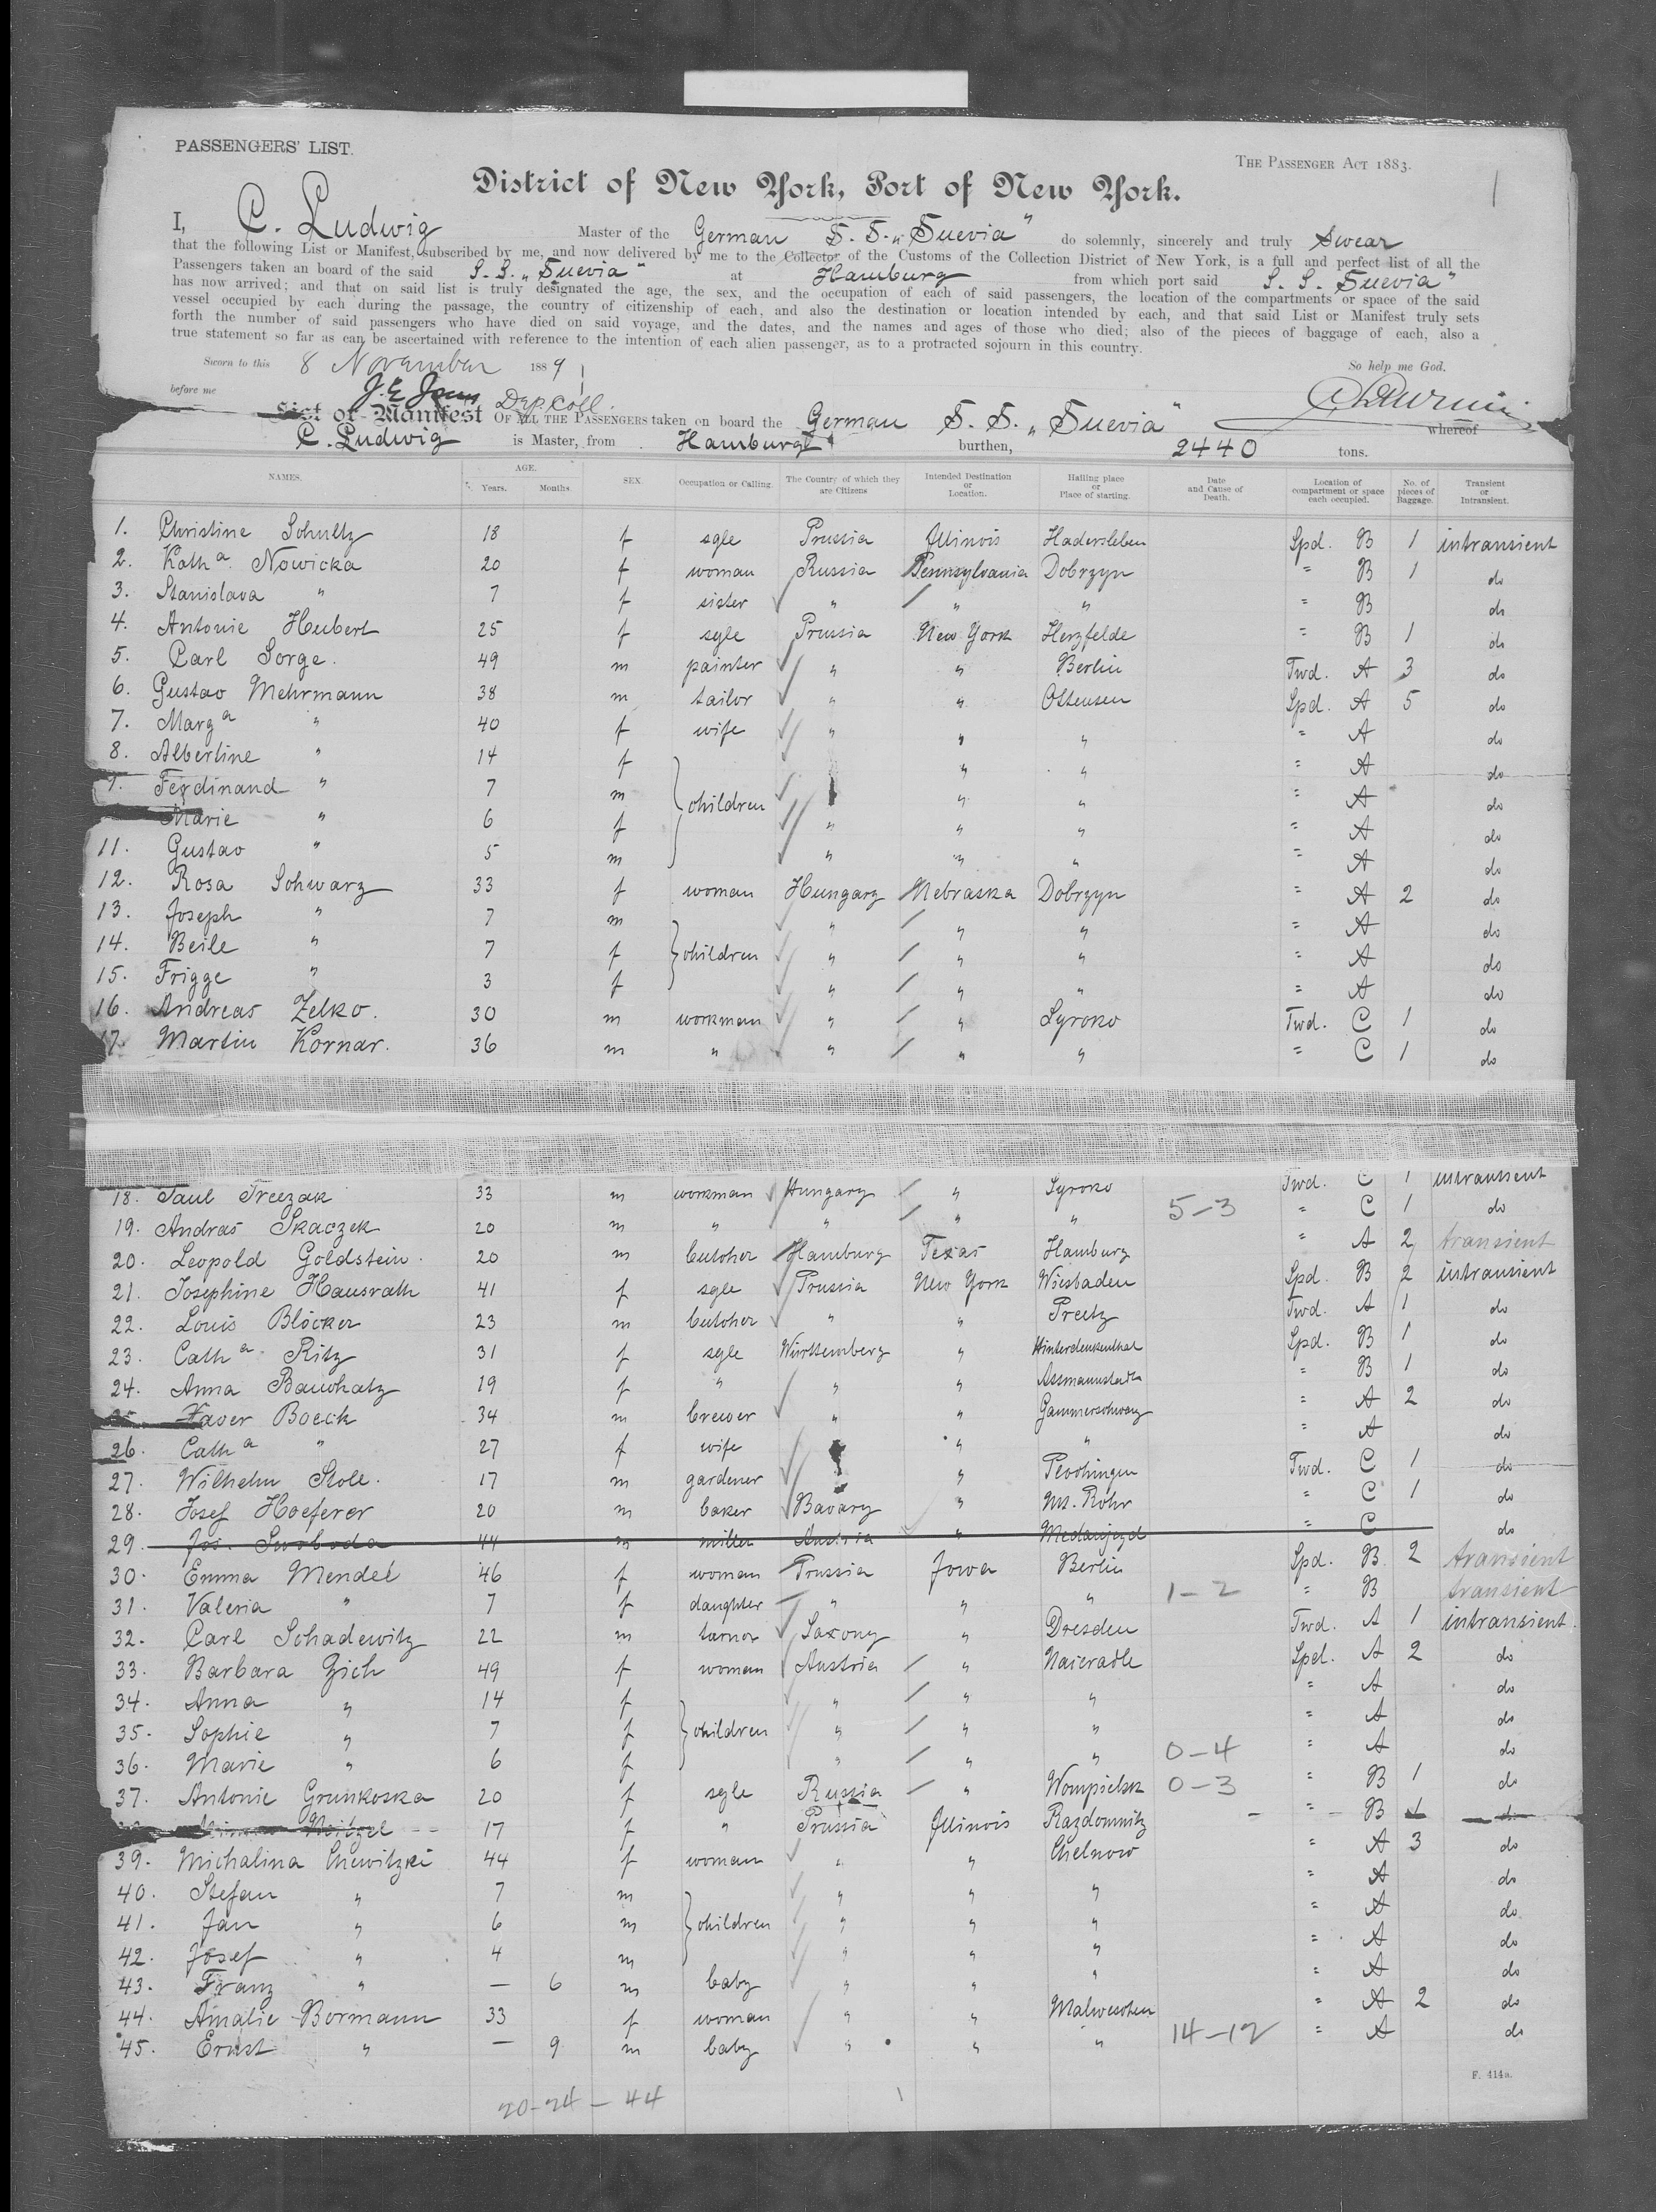 PASSENGERS' LIST.
THE PASSENGER ACT 1883.
1
District of New York, Port of New York.
I, C. Ludwig Master of the German S. S. „Suevia" do solemnly, sincerely and truly swear
that the following List or Manifest, subscribed by me, and now delivered by me to the Collector of the Customs of the Collection District of New York, is a full and perfect list of all the
Passengers taken an board of the said S. S. „Suevia" at Hamburg from which port said S. S. Suevia"
has now arrived; and that on said list is truly designated the age, the sex, and the occupation of each of said passengers, the location of the compartments or space of the said
vessel occupied by each during the passage, the country of citizenship of each, and also the destination or location intended by each, and that said List or Manifest truly sets
forth the number of said passengers who have died on said voyage, and the dates, and the names and ages of those who died; also of the pieces of baggage of each, also a
true statement so far as can be ascertained with reference to the intention of each alien passenger, as to a protracted sojourn in this country.
Sworn to this 8 November 1889 So help me God.
before me Dep. Coll.
List or Manifest OF ALL THE PASSENGERS taken on board the German S. S. „Suevia" whereof
C. Ludwig is Master, from Hamburg burthen, 2440 tons.
NAMES. AGE. Years. Months. SEX. Occupation or Calling. The Country of which they are Citizens Intended Destination or Location. Hailing place or Place of starting. Date and Cause of Death. Location of compartment or space each occupied. No. of pieces of Baggage. Transient or Intransient.
1. Christine Schultz 18 f sgle Prussia Illinois Hadersleben Spd. B 1 intransient
2. Kath a. Nowicka 20 f woman Russia Pennsylvania Dobrzyn " B 1 do
3. Stanislava " 7 f sister " " " " B do
4. Antonie Hubert 25 f sgle Prussia New York Herzfelde " B 1 do
5. Carl Sorge. 49 m painter " " Berlin Twd. A 3 do
6. Gustav Mehrmann 38 m tailor " " Ottensen Spd. A 5 do
7. Marg a " 40 f wife " " " " A do
8. Albertine " 14 f " " " A do
9. Ferdinand " 7 m children " " " A do
Marie " 6 f " " " " A do
11. Gustav " 5 m " " " " A do
12. Rosa Schwarz 33 f woman Hungary Nebraska Dobrzyn " A 2 do
13. Joseph " 7 m " " " " A do
14. Beile " 7 f children " " " " A do
15. Frigge " 3 f " " " " A do
16. Andreas Zelko. 30 m workman " " Syroko Twd. C 1 do
17. Martin Kornar. 36 m " " " " " C 1 do
18. Paul Treczak 33 m workman Hungary " Syroko Twd. C 1 intransient
19. Andras Skaczek 20 m " " " " 5-3 " C 1 do
20. Leopold Goldstein. 20 m butcher Hamburg Texas Hamburg " A 2 transient
21. Josephine Hausrath 41 f sgle Prussia New York Wiesbaden Spd. B 2 intransient
22. Louis Blöcker 23 m butcher " " Preetz Twd. A 1 do
23. Cath a. Ritz 31 f sgle Württemberg " Spd. B 1 do
24. Anna Bauchatz 19 f " " " Assmannstadt " B 1 do
Xaver Boeck 34 m brewer " " " A 2 do
26. Cath a " 27 f wife " " " A do
27. Wilhelm Stole. 17 m gardener " Plochingen Twd. C 1 do
28. Josef Hoeferer 20 m baker Bavary " Nt. Rohr " C 1 do
29. Jos. Swoboda 44 m miller Austria " " C do
30. Emma Mendel 46 f woman Prussia Jowa Berlin Spd. B 2 transient
31. Valeria " 7 f daughter " " " 1-2 " B transient
32. Carl Schadewitz 22 m Saxony " Dresden Twd. A 1 intransient.
33. Barbara Zich 49 f woman Austria " Naceradle Spd. A 2 do
34. Anna " 14 f " " " " A do
35. Sophie " 7 f children " " " " A do
36. Marie " 6 f " " " 0-4 " A do
37. Antonie Grunkoska 20 f sgle Russia " Wompielsk 0-3 " B 1 do
17 f " Prussia Illinois " B 1 do
39. Michalina Chewitzki 44 f woman " " Chelnow " A 3 do
40. Stefan " 7 m " " " " A do
41. Jan " 6 m children " " " " A do
42. Josef " 4 m " " " " A do
43. Franz " — 6 m baby " " " " A do
44. Amalie Bormann 33 f woman " " Malweschen " A 2 do
45. Ernst " — 9 m baby " " " 14-12 " A do
F. 414a.
20-24-44